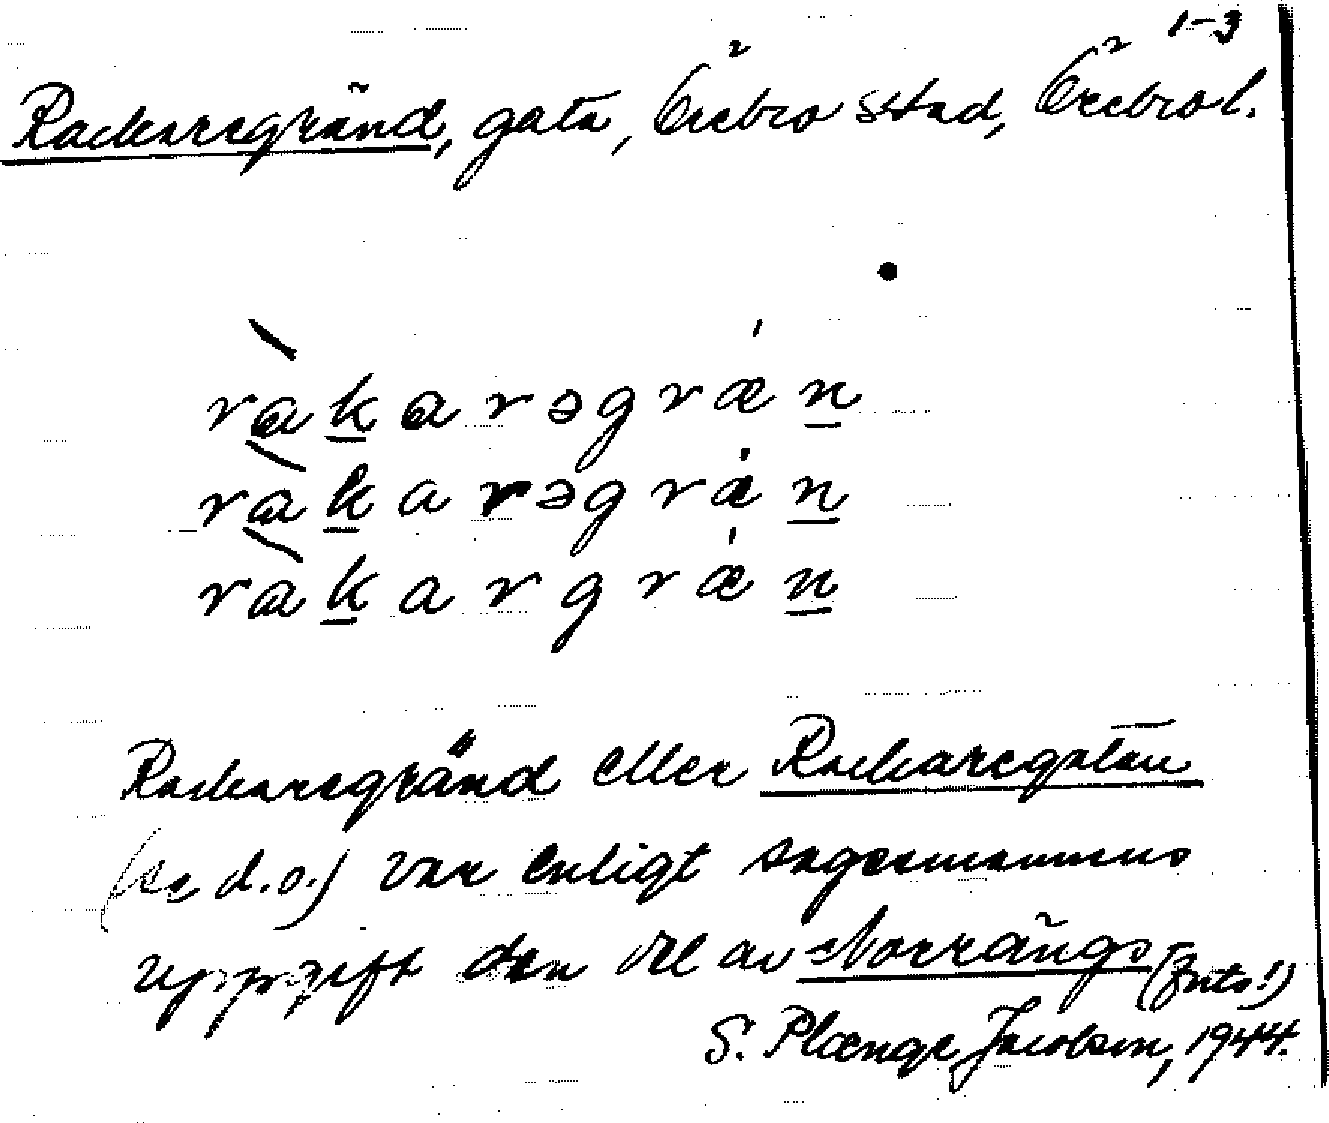 1-3
Rackaregränd, gata, Örebro stad, Örebro l.
ràkarəgrǽn
ràkarəgrǽn
ràkargrǽn
Rackaregränd eller Rackaregatan
(se d.o.) var enligt sagesmannens
uppgift den del av Norrängs- (forts!)
S. Plænge Jacobson, 1944.